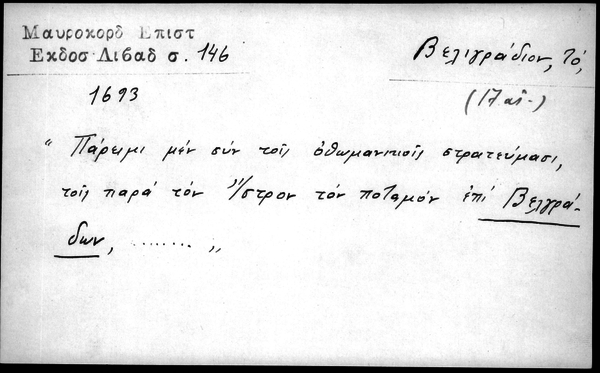 Μαυροκορδ Επιστ
Εκδοσ Λιβαδ σ. 146
Βελιγράδιον, τό,
1693
(17 αἰ.)
"Πάρειμι μέν σύν τοῖς ὀθωμανικοῖς στρατεύμασι,
τοῖς παρά τόν Ἴστρον τόν ποταμόν ἐπί Βελιγρά-
δων, ........ "